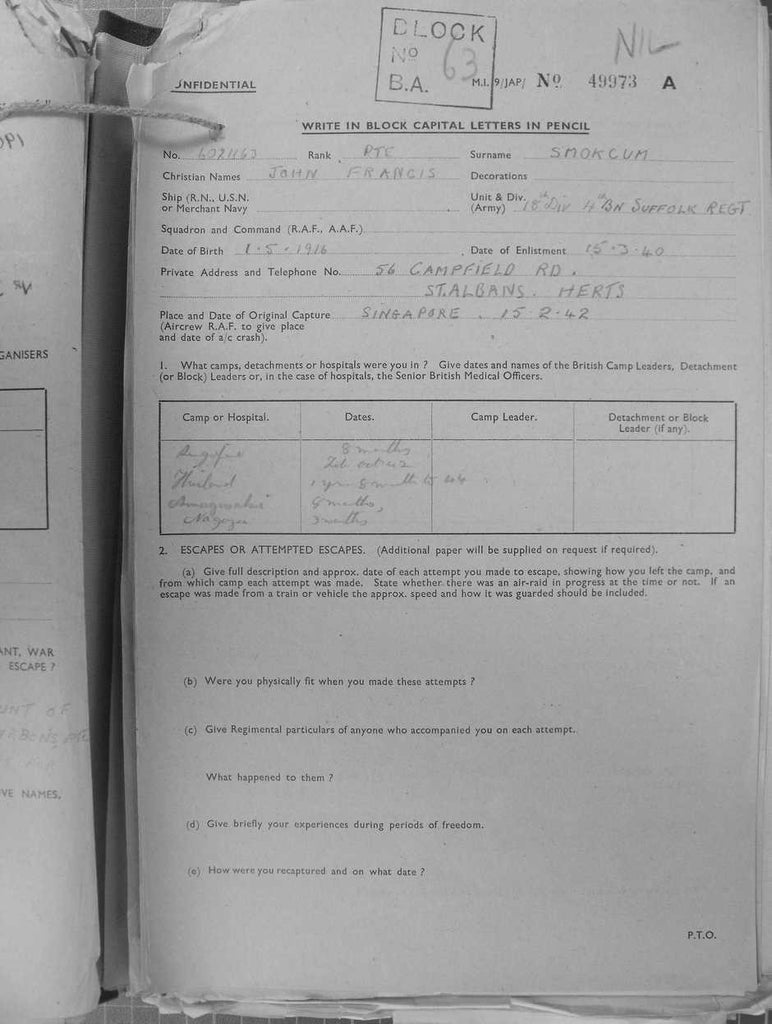 BLOCK
Nº 63
B.A.
NIL
NFIDENTIAL
M.I. 9/JAP/ Nº 49973 A
WRITE IN BLOCK CAPITAL LETTERS IN PENCIL
No. Rank PTE Surname SMOKCUM
Christian Names JOHN FRANCIS Decorations
Ship (R.N., U.S.N. or Merchant Navy Unit & Div. (Army) 18th DIV 4th BN SUFFOLK REGT
Squadron and Command (R.A.F., A.A.F.)
Date of Birth 1.5.1916 Date of Enlistment 15.3.40
Private Address and Telephone No. 56 CAMPFIELD RD.
ST. ALBANS. HERTS
Place and Date of Original Capture SINGAPORE. 15-2-42
(Aircrew R.A.F. to give place
and date of a/c crash).
1. What camps, detachments or hospitals were you in ? Give dates and names of the British Camp Leaders, Detachment
(or Block) Leaders or, in the case of hospitals, the Senior British Medical Officers.
Camp or Hospital. Dates. Camp Leader. Detachment or Block
Leader (if any).
8 months
Thailand
Nagoya 3 months
2. ESCAPES OR ATTEMPTED ESCAPES. (Additional paper will be supplied on request if required).
(a) Give full description and approx. date of each attempt you made to escape, showing how you left the camp, and
from which camp each attempt was made. State whether there was an air-raid in progress at the time or not. If an
escape was made from a train or vehicle the approx. speed and how it was guarded should be included.
(b) Were you physically fit when you made these attempts ?
(c) Give Regimental particulars of anyone who accompanied you on each attempt.
What happened to them ?
(d) Give briefly your experiences during periods of freedom.
(e) How were you recaptured and on what date ?
P.T.O.
GANISERS
ANT, WAR
ESCAPE ?
UNT OF
VE NAMES,